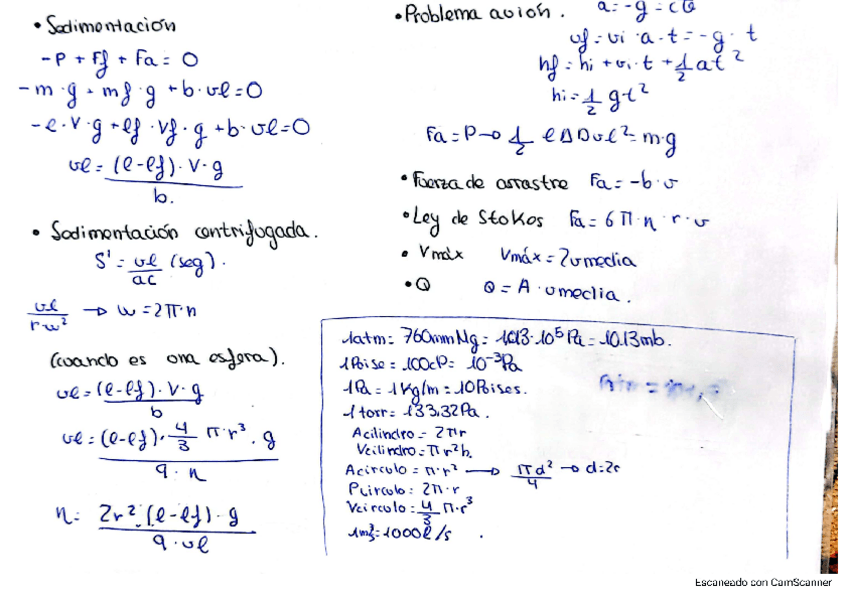 • Sedimentación
-P + Ff + Fa = 0
-m·g + mf·g + b·vl=0
-ℓ·V·g + ℓf·Vf·g + b·vl=0
vl = (ℓ-ℓf)·V·g / b.
• Sedimentación centrifugada.
S' = vl / ac (seg).
vl / rw² → w = 2π·n
(cuando es una esfera).
vl = (ℓ-ℓf)·V·g / b
vl = (ℓ-ℓf)·4/3 π·r³·g / 9·n
n = 2r²·(ℓ-ℓf)·g / 9·vl
• Problema avión. a = -g = cte
vf = vi·a·t = -g·t
hf = hi + vi·t + 1/2 at²
hi = 1/2 gt²
Fa = P → 1/2 ℓADvl² = m·g
• Fuerza de arrastre Fa = -b·v
• Ley de Stokes Fa = 6π·n·r·v
• Vmáx Vmáx = 2vmedia
• Q Q = A·vmedia.
1atm = 760mmHg = 1,013·10⁵Pa = 10.13mb.
1Poise = 100cP = 10⁻³Pa
1Pa = 1Kg/m = 10Poises.
1torr = 133,32Pa.
Acilindro = 2πr
Vcilindro = πr²h.
Acirculo = π·r² → πd²/4 → d=2r
Pcirculo = 2π·r
Vcirculo = 4/3 π·r³
1m³ = 1000ℓ/s
Escaneado con CamScanner